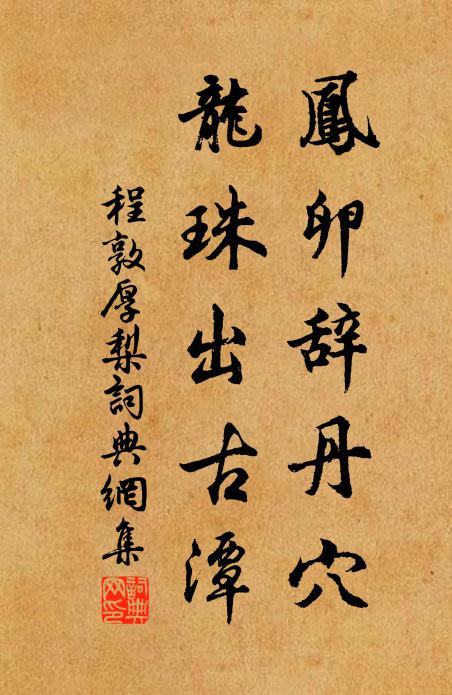 鳳卵辞丹穴
龍珠出古潭
程敦厚梨詞典網集
詞典網印